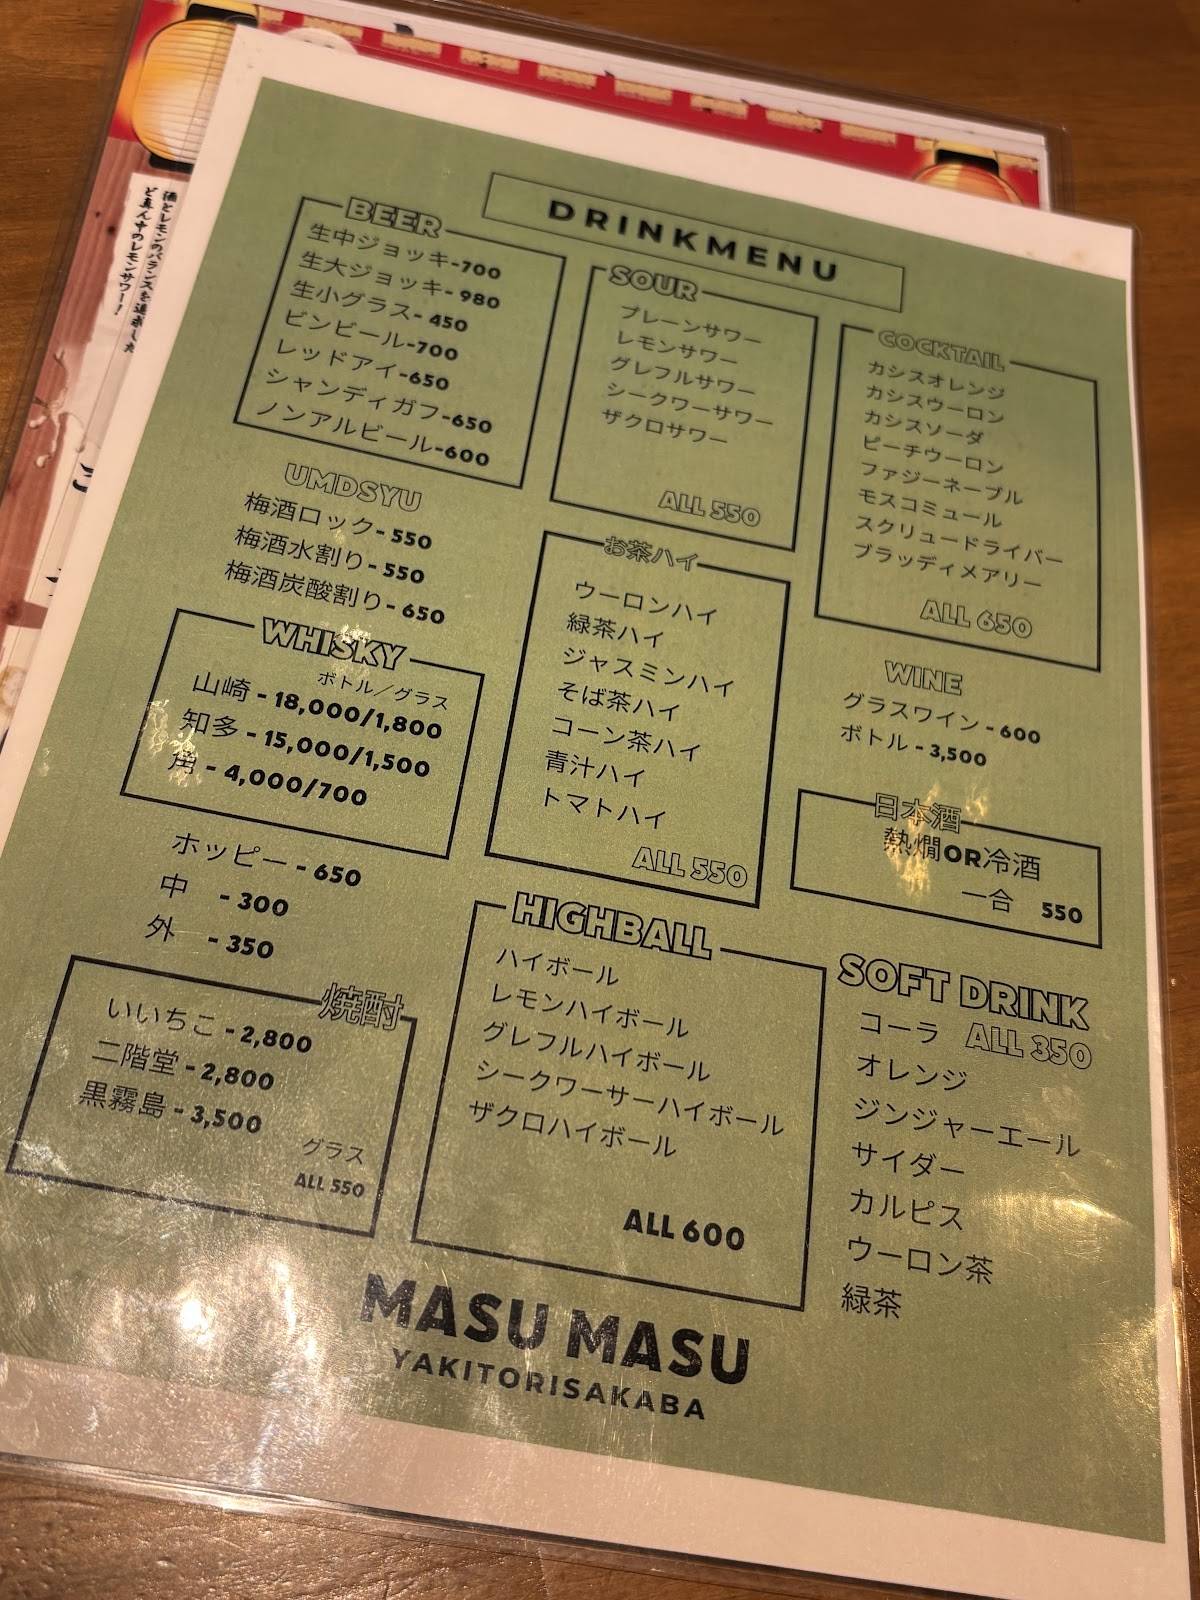 DRINKMENU
BEER
生中ジョッキ-700
生大ジョッキ-980
生小グラス-450
ビンビール-700
レッドアイ-650
シャンディガフ-650
ノンアルビール-600
UMDSYU
梅酒ロック-550
梅酒水割り-550
梅酒炭酸割り-650
WHISKY
ボトル/グラス
山崎-18,000/1,800
知多-15,000/1,500
角-4,000/700
ホッピー-650
中 -300
外 -350
焼酎
いいちこ-2,800
二階堂-2,800
黒霧島-3,500
グラス
ALL 550
SOUR
プレーンサワー
レモンサワー
グレフルサワー
シークワーサワー
ザクロサワー
ALL 550
お茶ハイ
ウーロンハイ
緑茶ハイ
ジャスミンハイ
そば茶ハイ
コーン茶ハイ
青汁ハイ
トマトハイ
ALL 550
HIGHBALL
ハイボール
レモンハイボール
グレフルハイボール
シークワーサーハイボール
ザクロハイボール
ALL 600
COCKTAIL
カシスオレンジ
カシスウーロン
カシスソーダ
ピーチウーロン
ファジーネーブル
モスコミュール
スクリュードライバー
ブラッディメアリー
ALL 650
WINE
グラスワイン-600
ボトル-3,500
日本酒
熱燗OR冷酒
一合 550
SOFT DRINK
コーラ ALL 350
オレンジ
ジンジャーエール
サイダー
カルピス
ウーロン茶
緑茶
MASU MASU
YAKITORISAKABA
酒とレモンのバランスを追求した
ど真ん中のレモンサワー!